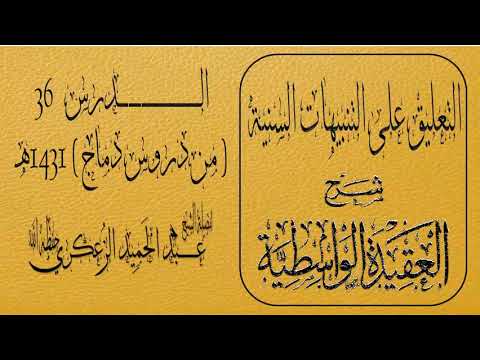 التعليق على التنبيهات السنية
شرح
العقيدة الواسطية
الـــدرس 36
( من دروس دماج ) 1431هـ
لفضيلة الشيخ
عبد الحميد الزعكري حفظه الله